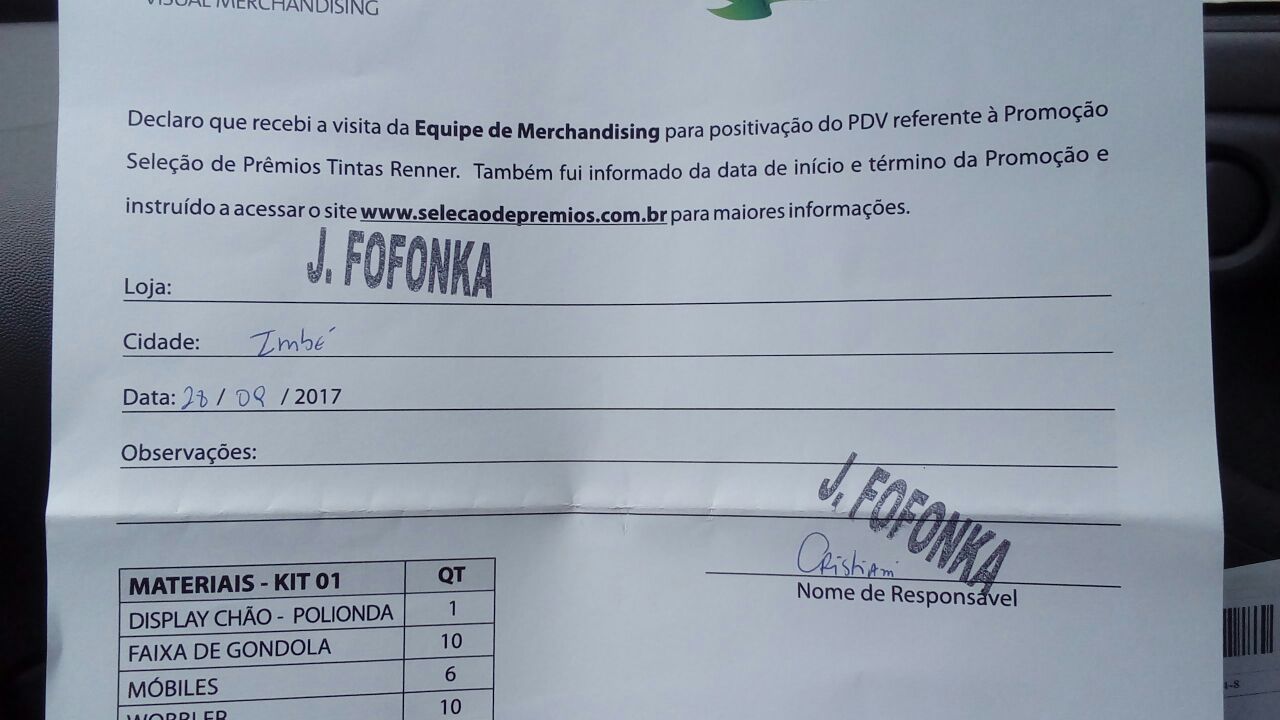 VISUAL MERCHANDISING
Declaro que recebi a visita da Equipe de Merchandising para positivação do PDV referente à Promoção
Seleção de Prêmios Tintas Renner. Também fui informado da data de início e término da Promoção e
instruído a acessar o site www.selecaodepremios.com.br para maiores informações.
Loja: J. FOFONKA
Cidade: Imbé
Data: 28 / 09 / 2017
Observações:
J. FOFONKA
Cristiani
Nome de Responsável
MATERIAIS - KIT 01 QT
DISPLAY CHÃO - POLIONDA 1
FAIXA DE GONDOLA 10
MÓBILES 6
WOBBLER 10